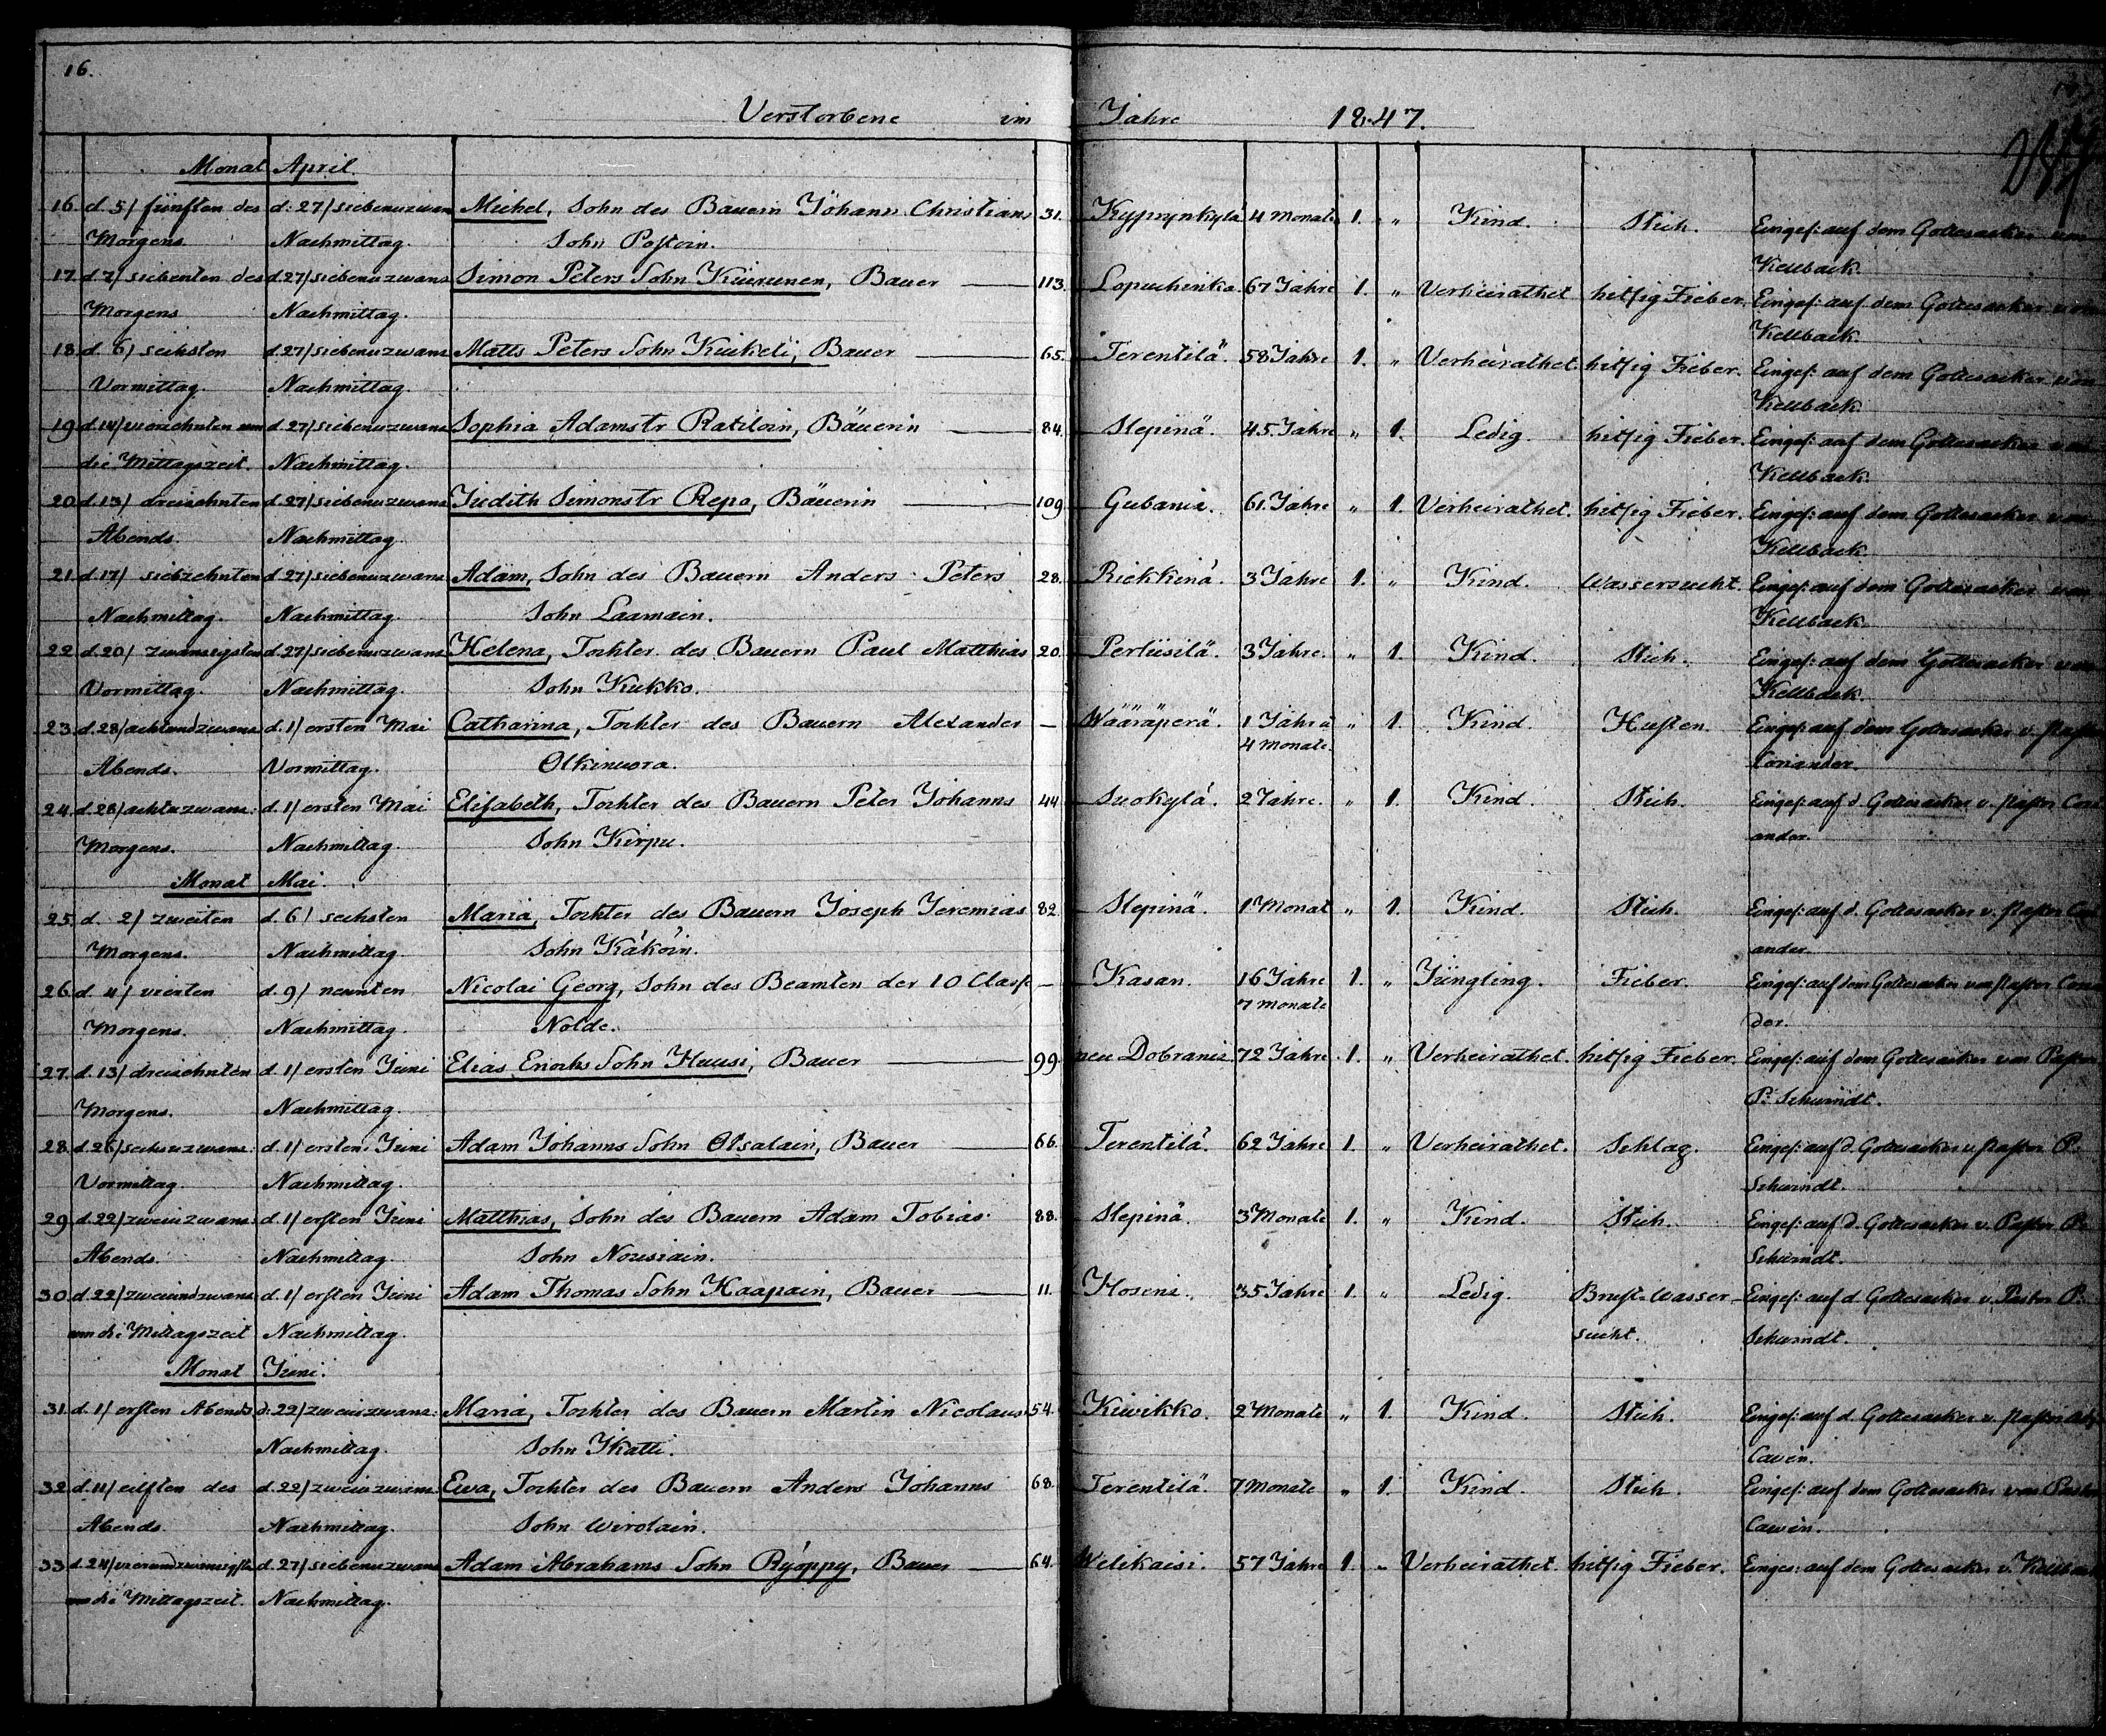 16.
Verstorbene im Jahre 1847.
Monat April.
16. d. 5/ fünften des d. 27/ siebenuzwan Michel, Sohn des Bauern Johann Christians 31. Kyprynkylä 4 Monate 1. " Kind. Stich. Eingef: auf dem Gottesacker von
Morgens Nachmittag. Sohn Postoin. Kellback.
17. d. 7/ siebenten des d. 27/ siebenuzwanz Simon Peters Sohn Kiiurunen, Bauer 113. Lopuchinka. 67 Jahre 1. " Verheirathet hitzig Fieber. Eingef: auf dem Gottesacker von
Morgens Nachmittag. Kellback.
18. d. 6/ sechsten d. 27/ siebenuzwanz Matts Peters Sohn Kukeli, Bauer 65. Terentilä. 58 Jahre 1. " Verheirathet. hitzig Fieber. Eingef: auf dem Gottesacker von
Vormittag. Nachmittag. Kellback.
19. d. 14/ vierzehnten um d. 27/ siebenuzwanz Sophia Adamstr Ratiloin, Bäuerin 84. Slepinä. 45. Jahre " 1. Ledig. hitzig Fieber. Eingef: auf dem Gottesacker von
die Mittagszeit. Nachmittag. Kellback.
20. d. 13/ dreizehnten d. 27/ siebenuzwanz Judith Simonstr Repo, Bäuerin 109 Gubaniz. 61. Jahre " 1. Verheirathet. hitzig Fieber. Eingef: auf dem Gottesacker von
Abends. Nachmittag. Kellback.
21. d. 17/ siebzehnten d. 27/ siebenuzwanz Adam, Sohn des Bauern Anders Peters 28. Riekkinä. 3 Jahre 1. " Kind. Wassersucht. Eingef: auf dem Gottesacker von
Nachmittag. Nachmittag. Sohn Laamain. Kellback.
22. d. 20/ zwanzigsten d. 27/ siebenuzwanz Helena, Tochter des Bauern Paul Matthias 20. Pertüsilä. 3 Jahre. " 1. Kind. Stich. Eingef: auf dem Gottesacker von
Vormittag. Nachmittag. Sohn Kukko. Kellback.
23. d. 28/ achtundzwanz d. 1/ ersten Mai Catharina, Tochter des Bauern Alexander — Wääräperä. 1 Jahr u " 1. Kind. Husten. Eingef: auf dem Gottesacker v. Pastor
4 Monate.
Abends. Vormittag. Olkinuora. Coriander.
24. d. 28/ achtuzwanz: d. 1/ ersten Mai Elisabeth, Tochter des Bauern Peter Johanns 44 Suokylä. 2 Jahre. " 1. Kind. Stich. Eingef: auf d. Gottesacker v. Pastor Cori
Morgens. Nachmittag. Sohn Kirpu. ander.
Monat Mai.
25. d. 2/ zweiten d. 6/ sechsten Maria, Tochter des Bauern Joseph Jeremias 82. Slepinä. 1 Monat " 1. Kind. Stich. Eingef: auf d. Gottesacker v. Pastor Cori
Morgens. Nachmittag. Sohn Käköin. ander.
26. d. 4/ vierten d. 9/ neunten Nicolai Georg, Sohn des Beamten der 10 Classe — Kasan. 16 Jahre 1. " Jüngling. Fieber. Eingef: auf dem Gottesacker von Pastor Corian
7 Monate
Morgens. Nachmittag. Nolde. der.
27. d. 13/ dreizehnten d. 1/ ersten Juni Elias Enochs Sohn Huusi, Bauer 99. neu Dobraniz 72 Jahre 1. " Verheirathet. hitzig Fieber. Eingef: auf dem Gottesacker von Pastor
Morgens. Nachmittag. P: Schwindt.
28. d. 26/ sechsuzwanz: d. 1/ ersten Juni Adam Johanns Sohn Otsalain, Bauer 66. Terentilä. 62 Jahre 1. " Verheirathet. Schlag. Eingef: auf d. Gottesacker v. Pastor P.
Vormittag. Nachmittag. Schwindt.
29. d. 22/ zweiuzwanz: d. 1/ ersten Juni Matthias, Sohn des Bauern Adam Tobias 88. Slepinä. 3 Monate 1. " Kind. Stich. Eingef: auf d. Gottesacker v. Pastor P:
Abends. Nachmittag. Sohn Nousiain. Schwindt.
30. d. 22/ zweiundzwanz d. 1/ ersten Juni Adam Thomas Sohn Haapain, Bauer 11. Hoseni. 35 Jahre 1. " Ledig. Brust-Wasser- Eingef: auf d. Gottesacker v. Pastor P.
um die Mittagszeit Nachmittag. sucht. Schwindt.
Monat Juni.
31. d. 1/ ersten Abends d. 22/ zweiuzwanz: Maria, Tochter des Bauern Martin Nicolaus 54. Kiwikko. 2 Monate " 1. Kind. Stich. Eingef: auf d. Gottesacker v. Pastor
Nachmittag. Sohn Ikatti. Cawén.
32. d. 11/ eilften des d. 22/ zweiuzwanz: Ewa, Tochter des Bauern Anders Johanns 68. Terentilä. 7 Monate " 1. Kind. Stich. Eingef: auf dem Gottesacker von Pastor
Abends. Nachmittag. Sohn Wirolain. Cawén.
33. d. 24/ vierundzwanzigsten d. 27/ siebenuzwanz Adam Abrahams Sohn Ryöppy, Bauer 64. Welikaisi. 57 Jahre 1. " Verheirathet. hitzig Fieber. Einges: auf dem Gottesacker v. Kellback
um die Mittagszeit. Nachmittag.